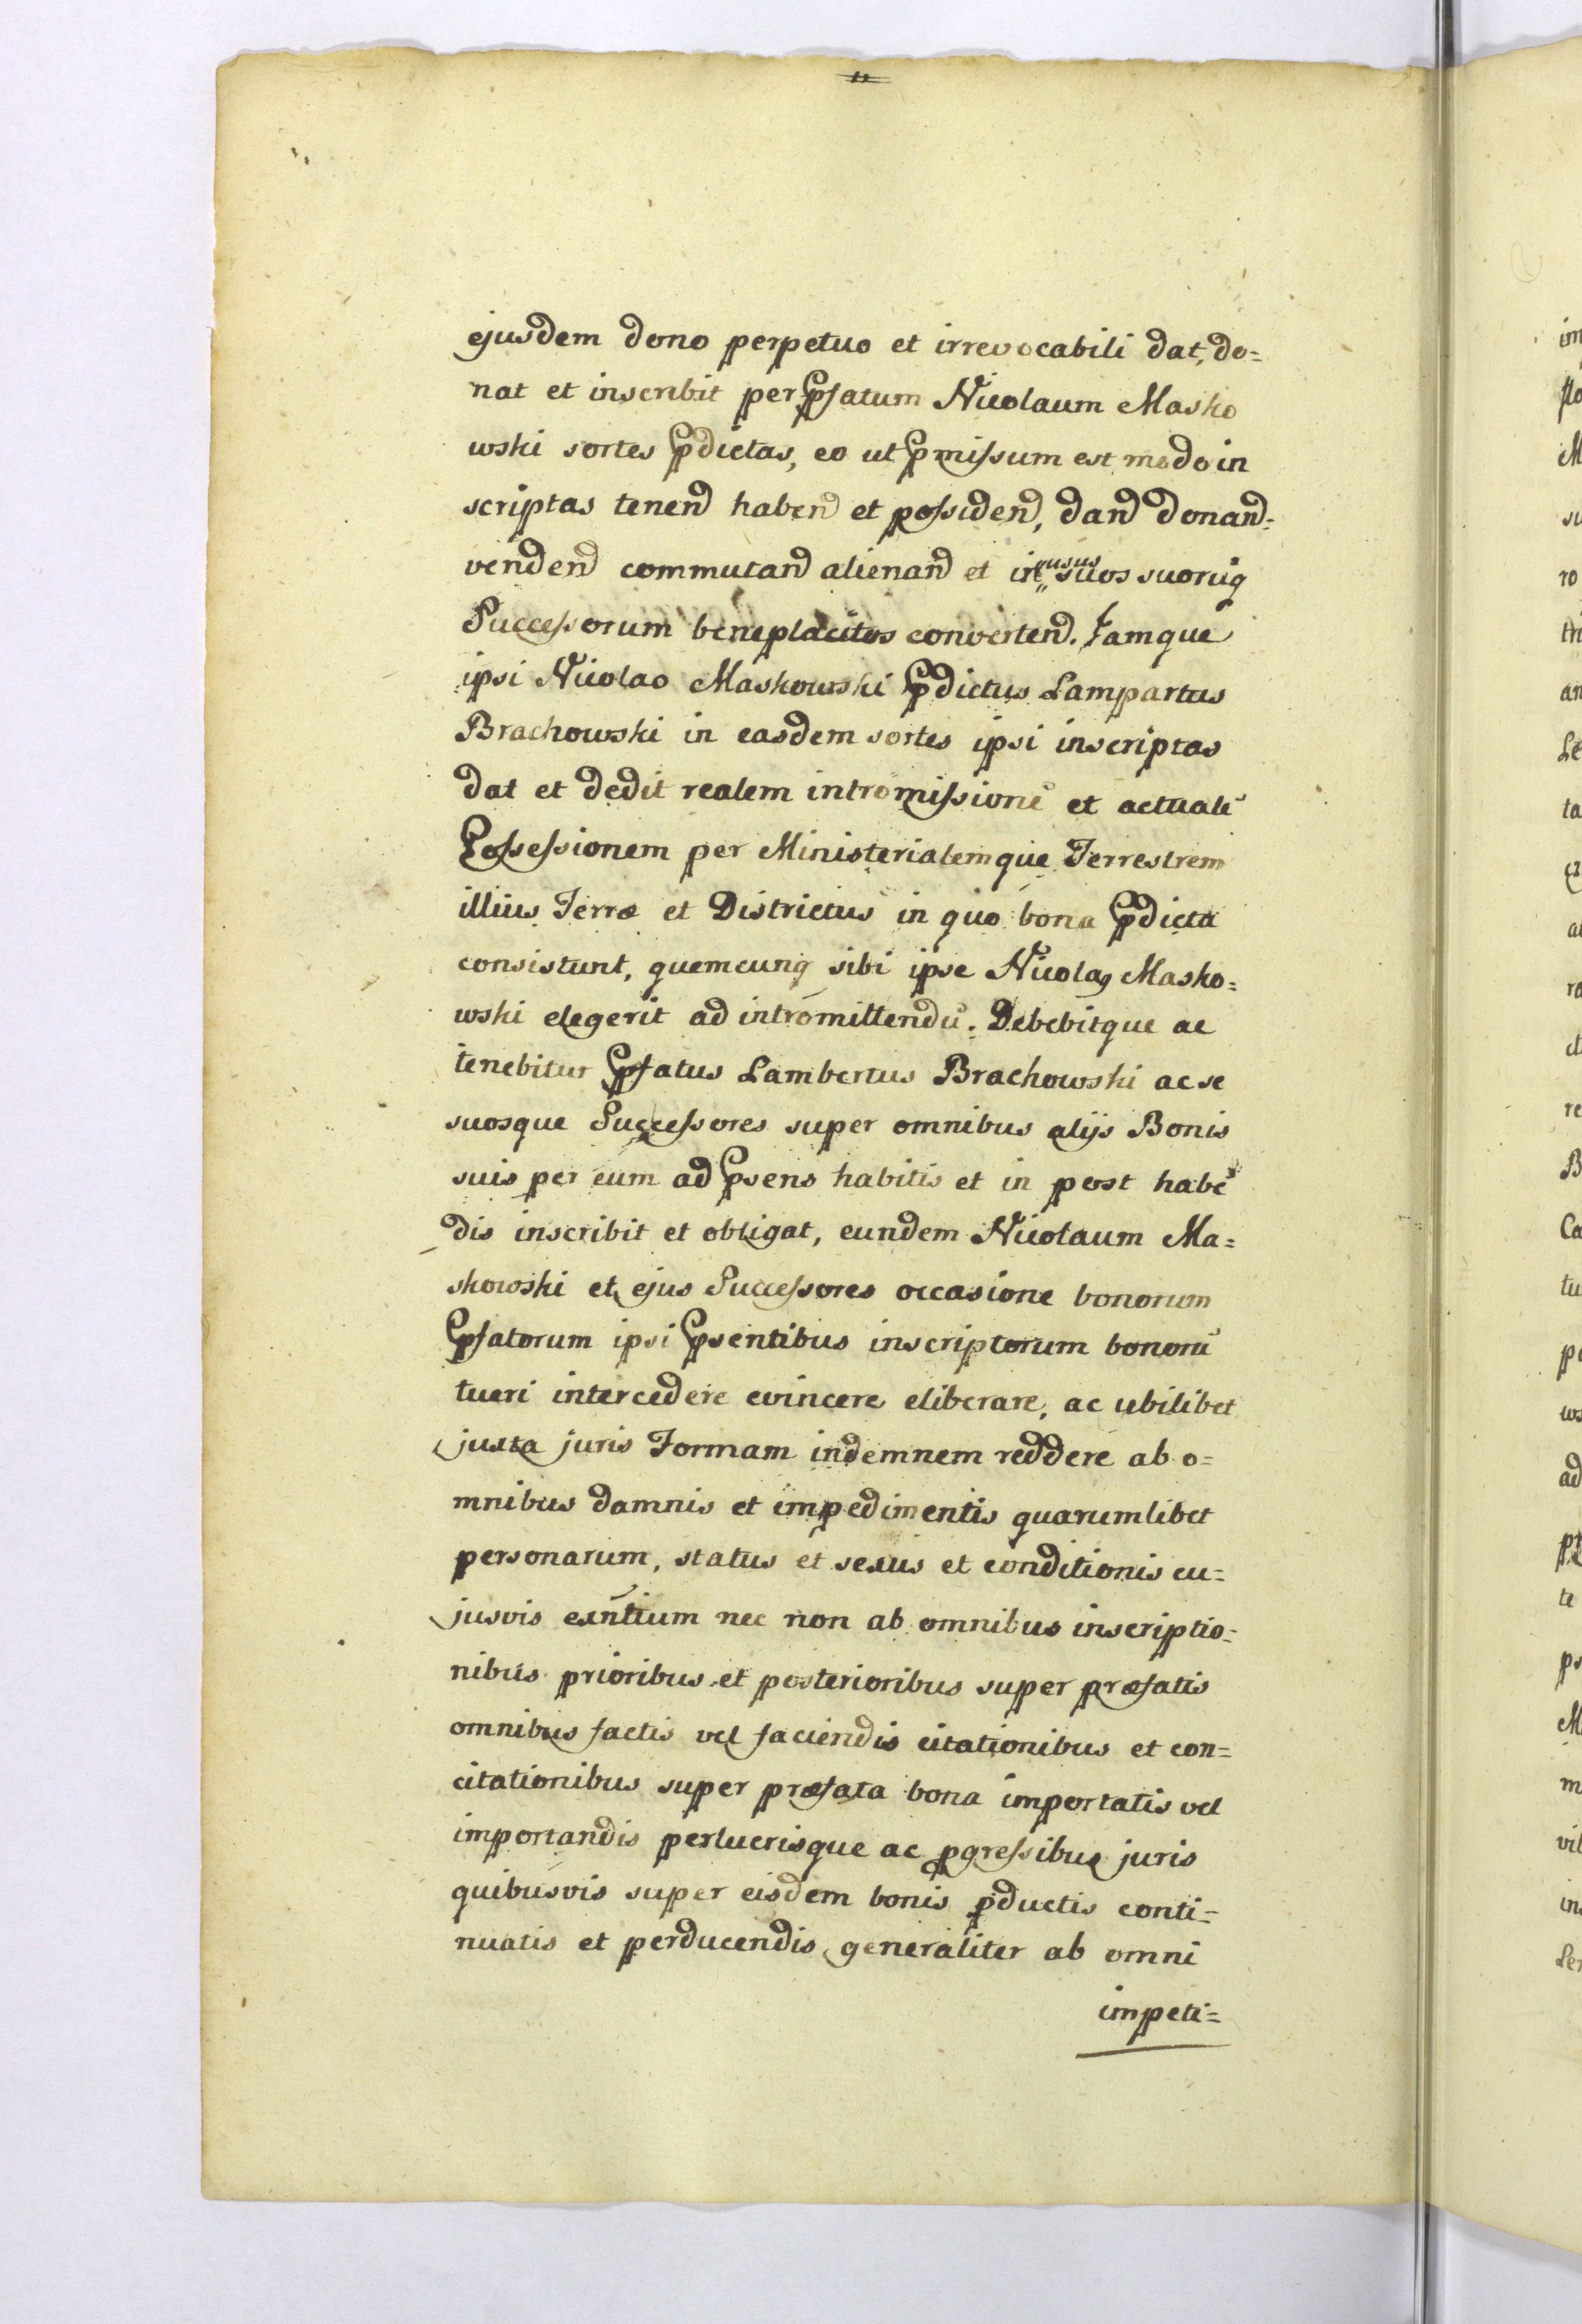 ejusdem dono perpetuo et irrevocabili dat, do=
nat et inscribit per Pfatum Nicolaum Masko
wski sortes Pdictas, eo ut Pmissum est modo in
scriptas tenend habend et possidend, dand donand=
vendend commutand alienand et in usus suos suorūq
Successorum beneplacitos convertend. Jamque
ipsi Nicolao Maskowski Pdictus Lampartus
Brachowski in easdem sortes ipsi inscriptas
dat et dedit realem intromissionē et actualē
Possessionem per Ministerialemque Terrestrem
illius Terræ et Districtus in quo bona Pdicta
consistunt, quemcunq sibi ipse Nicolaꝯ Masko=
wski elegerit ad intromittendū. Debebitque ac
tenebitur Pfatus Lambertus Brachowski ac se
suosque Successores super omnibus alijs Bonis
suis per eum ad Psens habitis et in post habē
dis inscribit et obligat, eundem Nicolaum Ma=
skowski et ejus Successores occasione bonorum
Pfatorum ipsi Psentibus inscriptorum bonorū
tueri intercedere evincere eliberare, ac ubilibet
juxta juris Formam indemnem reddere ab o=
mnibus damnis et impedimentis quarumlibet
personarum, status et sexus et conditionis cu=
jusvis exn̄tium nec non ab omnibus inscriptio=
nibus prioribus et posterioribus super præfatis
omnibus factis vel faciendis citationibus et con=
citationibus super præfata bona importatis vel
importandis perlucrisque ac pgressibus juris
quibusvis super eisdem bonis pductis conti=
nuatis et perducendis generaliter ab omni
impeti=